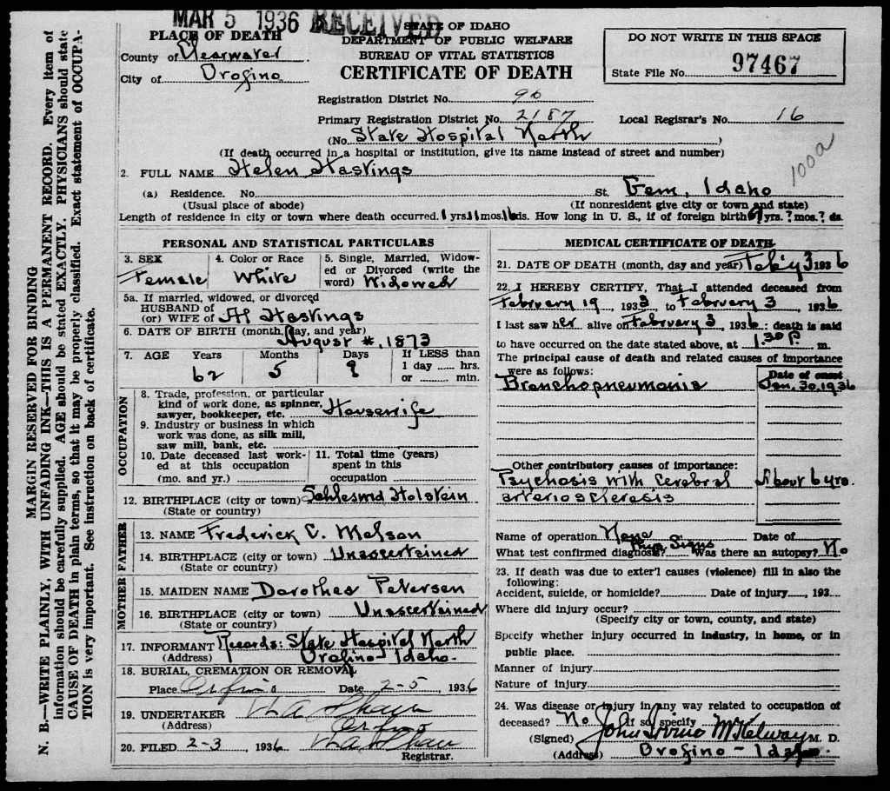 MAR 5 1936 RECEIVED
STATE OF IDAHO
DEPARTMENT OF PUBLIC WELFARE
BUREAU OF VITAL STATISTICS
CERTIFICATE OF DEATH
PLACE OF DEATH
County of Clearwater
City of Orofino
DO NOT WRITE IN THIS SPACE
State File No. 97467
Registration District No. 96
Primary Registration District No. 2187 Local Regisrar's No. 16
(No. State Hospital North )
(If death occurred in a hospital or institution, give its name instead of street and number)
100a
2. FULL NAME Helen Hastings
(a) Residence. No. St. Gem, Idaho
(Usual place of abode) (If nonresident give city or town and state)
Length of residence in city or town where death occurred. 1 yrs. 11 mos. ds. How long in U. S., if of foreign birth yrs. ? mos. ? ds.
PERSONAL AND STATISTICAL PARTICULARS
3. SEX Female
4. Color or Race White
5. Single, Married, Widowed or Divorced (write the word) Widowed
5a. If married, widowed, or divorced
HUSBAND of
(or) WIFE of Al Hastings
6. DATE OF BIRTH (month, day, and year) August , 1873
7. AGE Years 62 Months 5 Days 9 If LESS than 1 day ...... hrs. or ...... min.
OCCUPATION
8. Trade, profession, or particular
kind of work done, as spinner,
sawyer, bookkeeper, etc. Housewife
9. Industry or business in which
work was done, as silk mill,
saw mill, bank, etc.
10. Date deceased last worked at this occupation (mo. and yr.)
11. Total time (years) spent in this occupation
12. BIRTHPLACE (city or town) Holstein
(State or country)
FATHER
13. NAME Frederick C.
14. BIRTHPLACE (city or town) Unascertained
(State or country)
MOTHER
15. MAIDEN NAME Dorothea Petersen
16. BIRTHPLACE (city or town) Unascertained
(State or country)
17. INFORMANT Records: State Hospital North
(Address) Orofino Idaho.
18. BURIAL, CREMATION OR REMOVAL
Place Orofino Date 2-5, 1936
19. UNDERTAKER
(Address) Orofino
20. FILED 2-3, 1936
Registrar.
MEDICAL CERTIFICATE OF DEATH
21. DATE OF DEATH (month, day and year) Feb'y 3 1936
22. I HEREBY CERTIFY, That I attended deceased from
February 19, 1933 to February 3, 1936
I last saw her alive on February 3, 1936: death is said
to have occurred on the date stated above, at 1.30 P. m.
The principal cause of death and related causes of importance
were as follows:
Date of onset
Bronchopneumonia Jan. 30, 1936
Other contributory causes of importance:
Psychosis with cerebral About 6 yrs.
arteriosclerosis
Name of operation None Date of
What test confirmed diagnosis? Phys. Signs Was there an autopsy? No
23. If death was due to exter'l causes (violence) fill in also the
following:
Accident, suicide, or homicide? Date of injury , 193
Where did injury occur?
(Specify city or town, county, and state)
Specify whether injury occurred in industry, in home, or in
public place.
Manner of injury
Nature of injury
24. Was disease or injury in any way related to occupation of
deceased? No If so, specify
(Signed) John Irvine McKelway M. D.
(Address) Orofino - Idaho.
MARGIN RESERVED FOR BINDING
N. B.—WRITE PLAINLY, WITH UNFADING INK—THIS IS A PERMANENT RECORD. Every item of
information should be carefully supplied. AGE should be stated EXACTLY. PHYSICIANS should state
CAUSE OF DEATH in plain terms, so that it may be properly classified. Exact statement of OCCUPA-
TION is very important. See instruction on back of certificate.